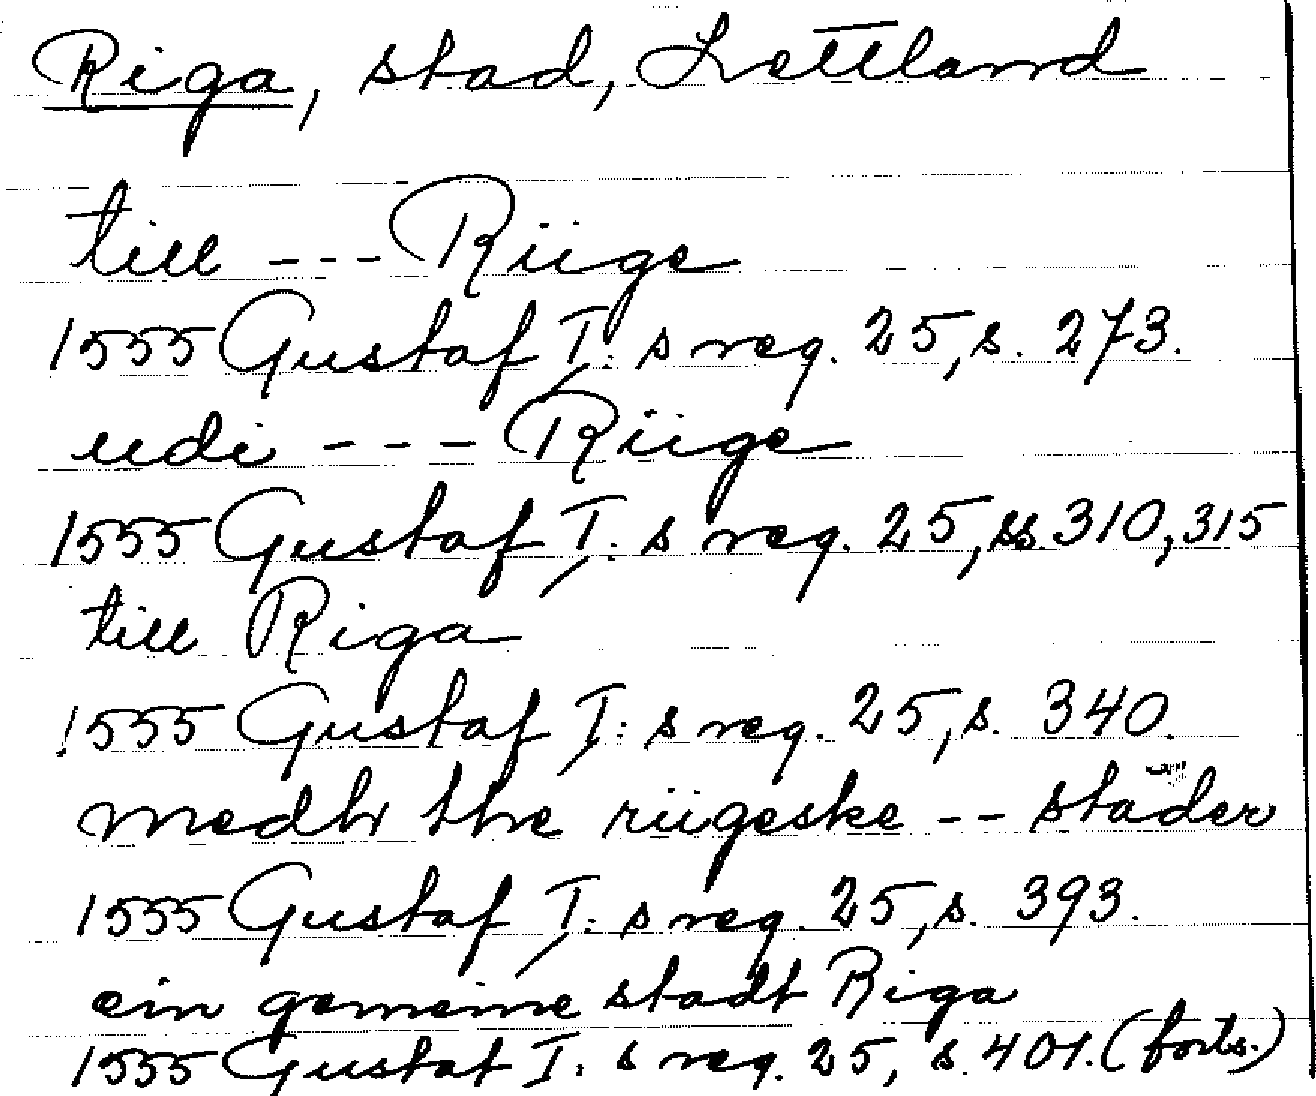 Riga, stad, Lettland
till --- Riige
1555 Gustaf I:s reg. 25, s. 273.
udi --- Riige
1555 Gustaf I:s reg. 25, ss. 310, 315
till Riga
1555 Gustaf I:s reg. 25, s. 340.
medh the riigeske -- städer
1555 Gustaf I:s reg. 25, s. 393.
ein gemeine stadt Riga
1555 Gustaf I:s reg. 25, s. 401. (forts.)